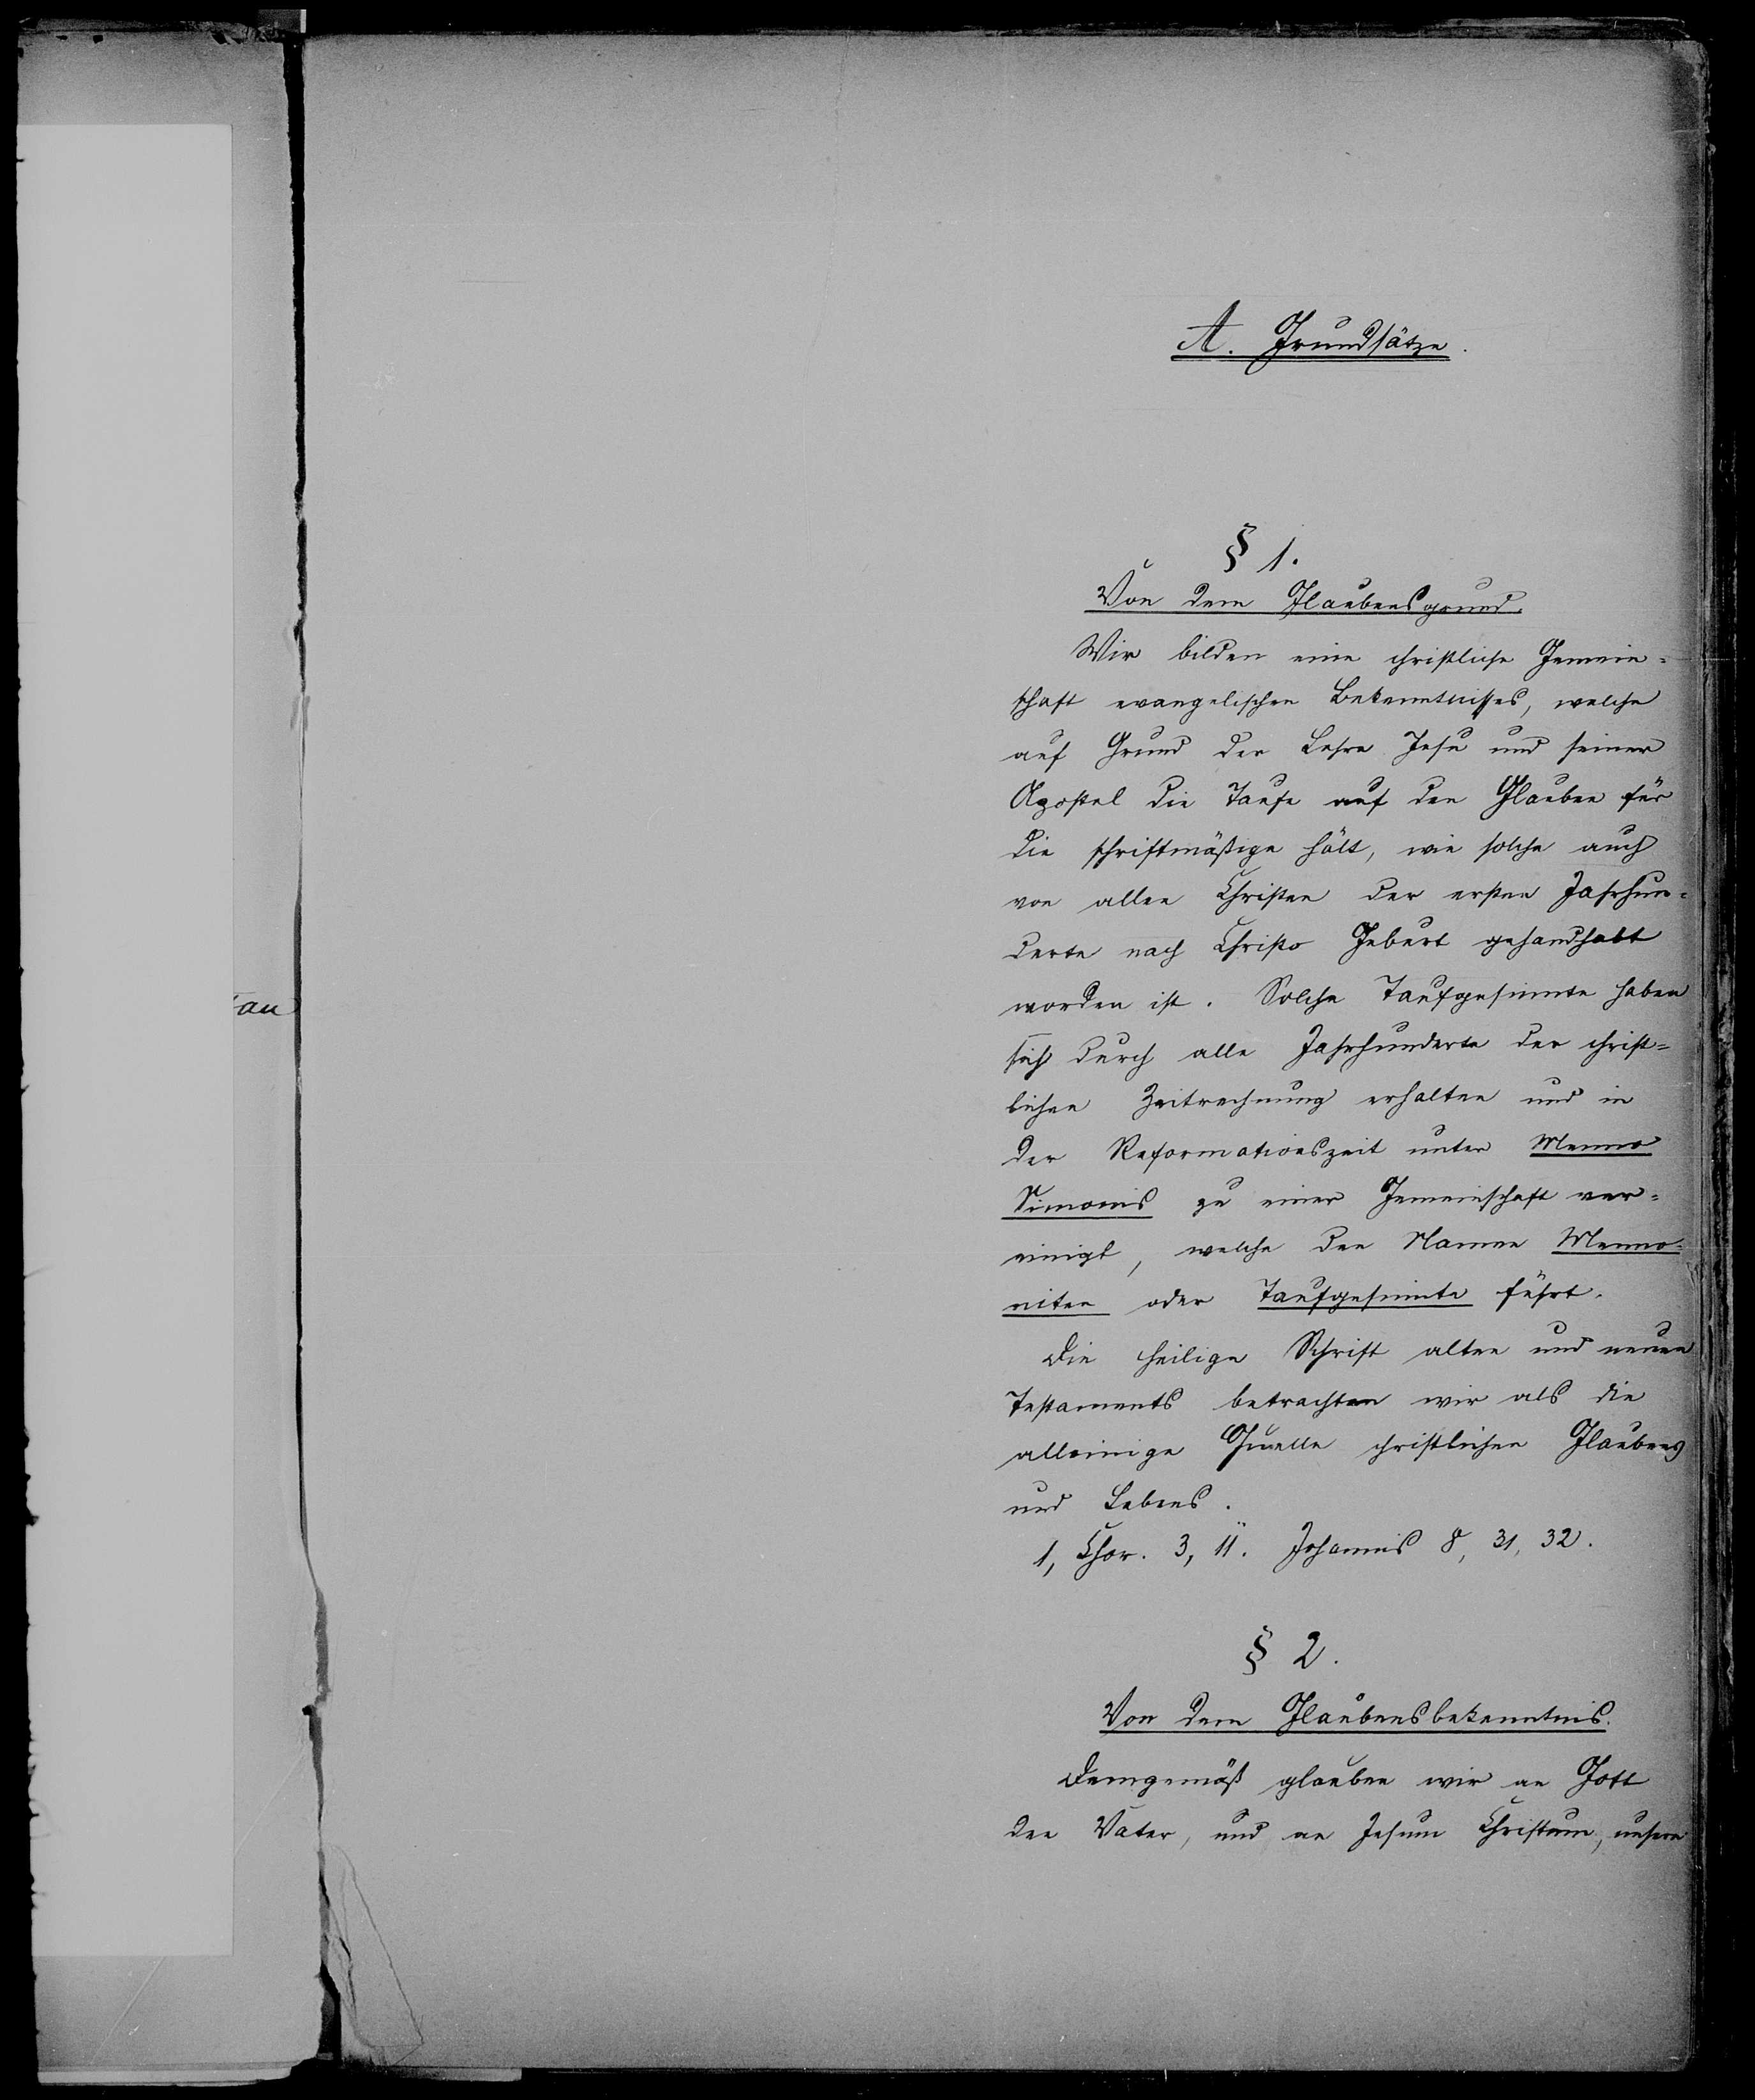 A. Grundsätze.
§ 1.
Von dem Glaubensgrund.
Wir bilden eine christliche Gemein-
schaft evangelischen Bekenntnisses, welche
auf Grund der Lehre Jesu und seiner
Apostel die Taufe auf den Glauben für
die schriftmäßige hält, wie solche auch
von allen Christen der ersten Jahrhun-
derte nach Christo Geburt gehandhabt
worden ist. Solche Taufgesinnte haben
sich durch alle Jahrhunderte der christ-
lichen Zeitrechnung erhalten und in
der Reformationszeit unter Menno
Simonis zu einer Gemeinschaft ver-
einigt, welche den Namen Menno-
niten oder Taufgesinnte führt.
Die heilige Schrift alten und neuen
Testaments betrachten wir als die
alleinige Quelle christlichen Glaubens
und Lebens.
1, Chor. 3, 11. Johannis 8, 31, 32.
§ 2.
Von dem Glaubensbekenntnis.
Demgemäß glauben wir an Gott
den Vater, und an Jesum Christum, unsern